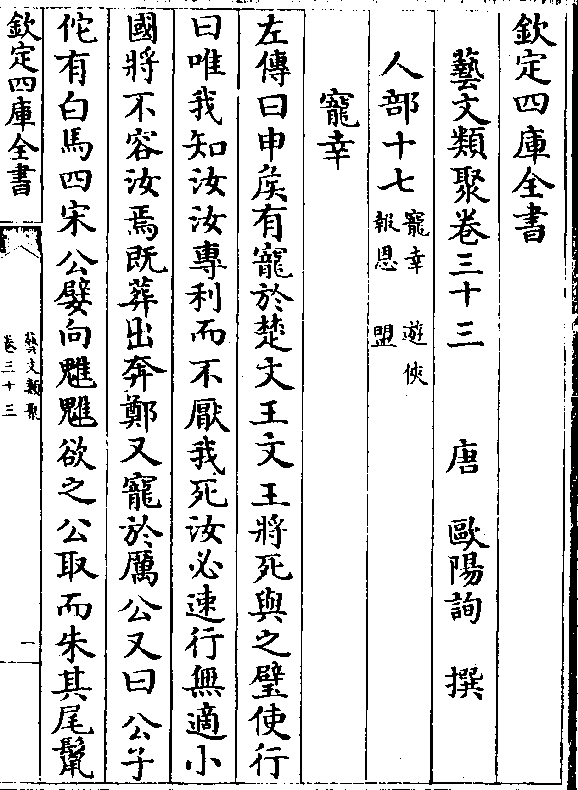 欽定四庫全書
藝文類聚卷三十三 唐 歐陽詢 撰
人部十七 寵幸 遊俠
報恩 盟
寵幸
左傳曰申矦有寵於楚文王文王將死與之璧使行
曰唯我知汝汝專利而不厭我死汝必速行無適小
國將不容汝焉既葬出奔鄭又寵於厲公又曰公子
佗有白馬四宋公嬖向魋魋欲之公取而朱其尾鬛
欽定四庫全書
藝文類聚
卷三十三
一